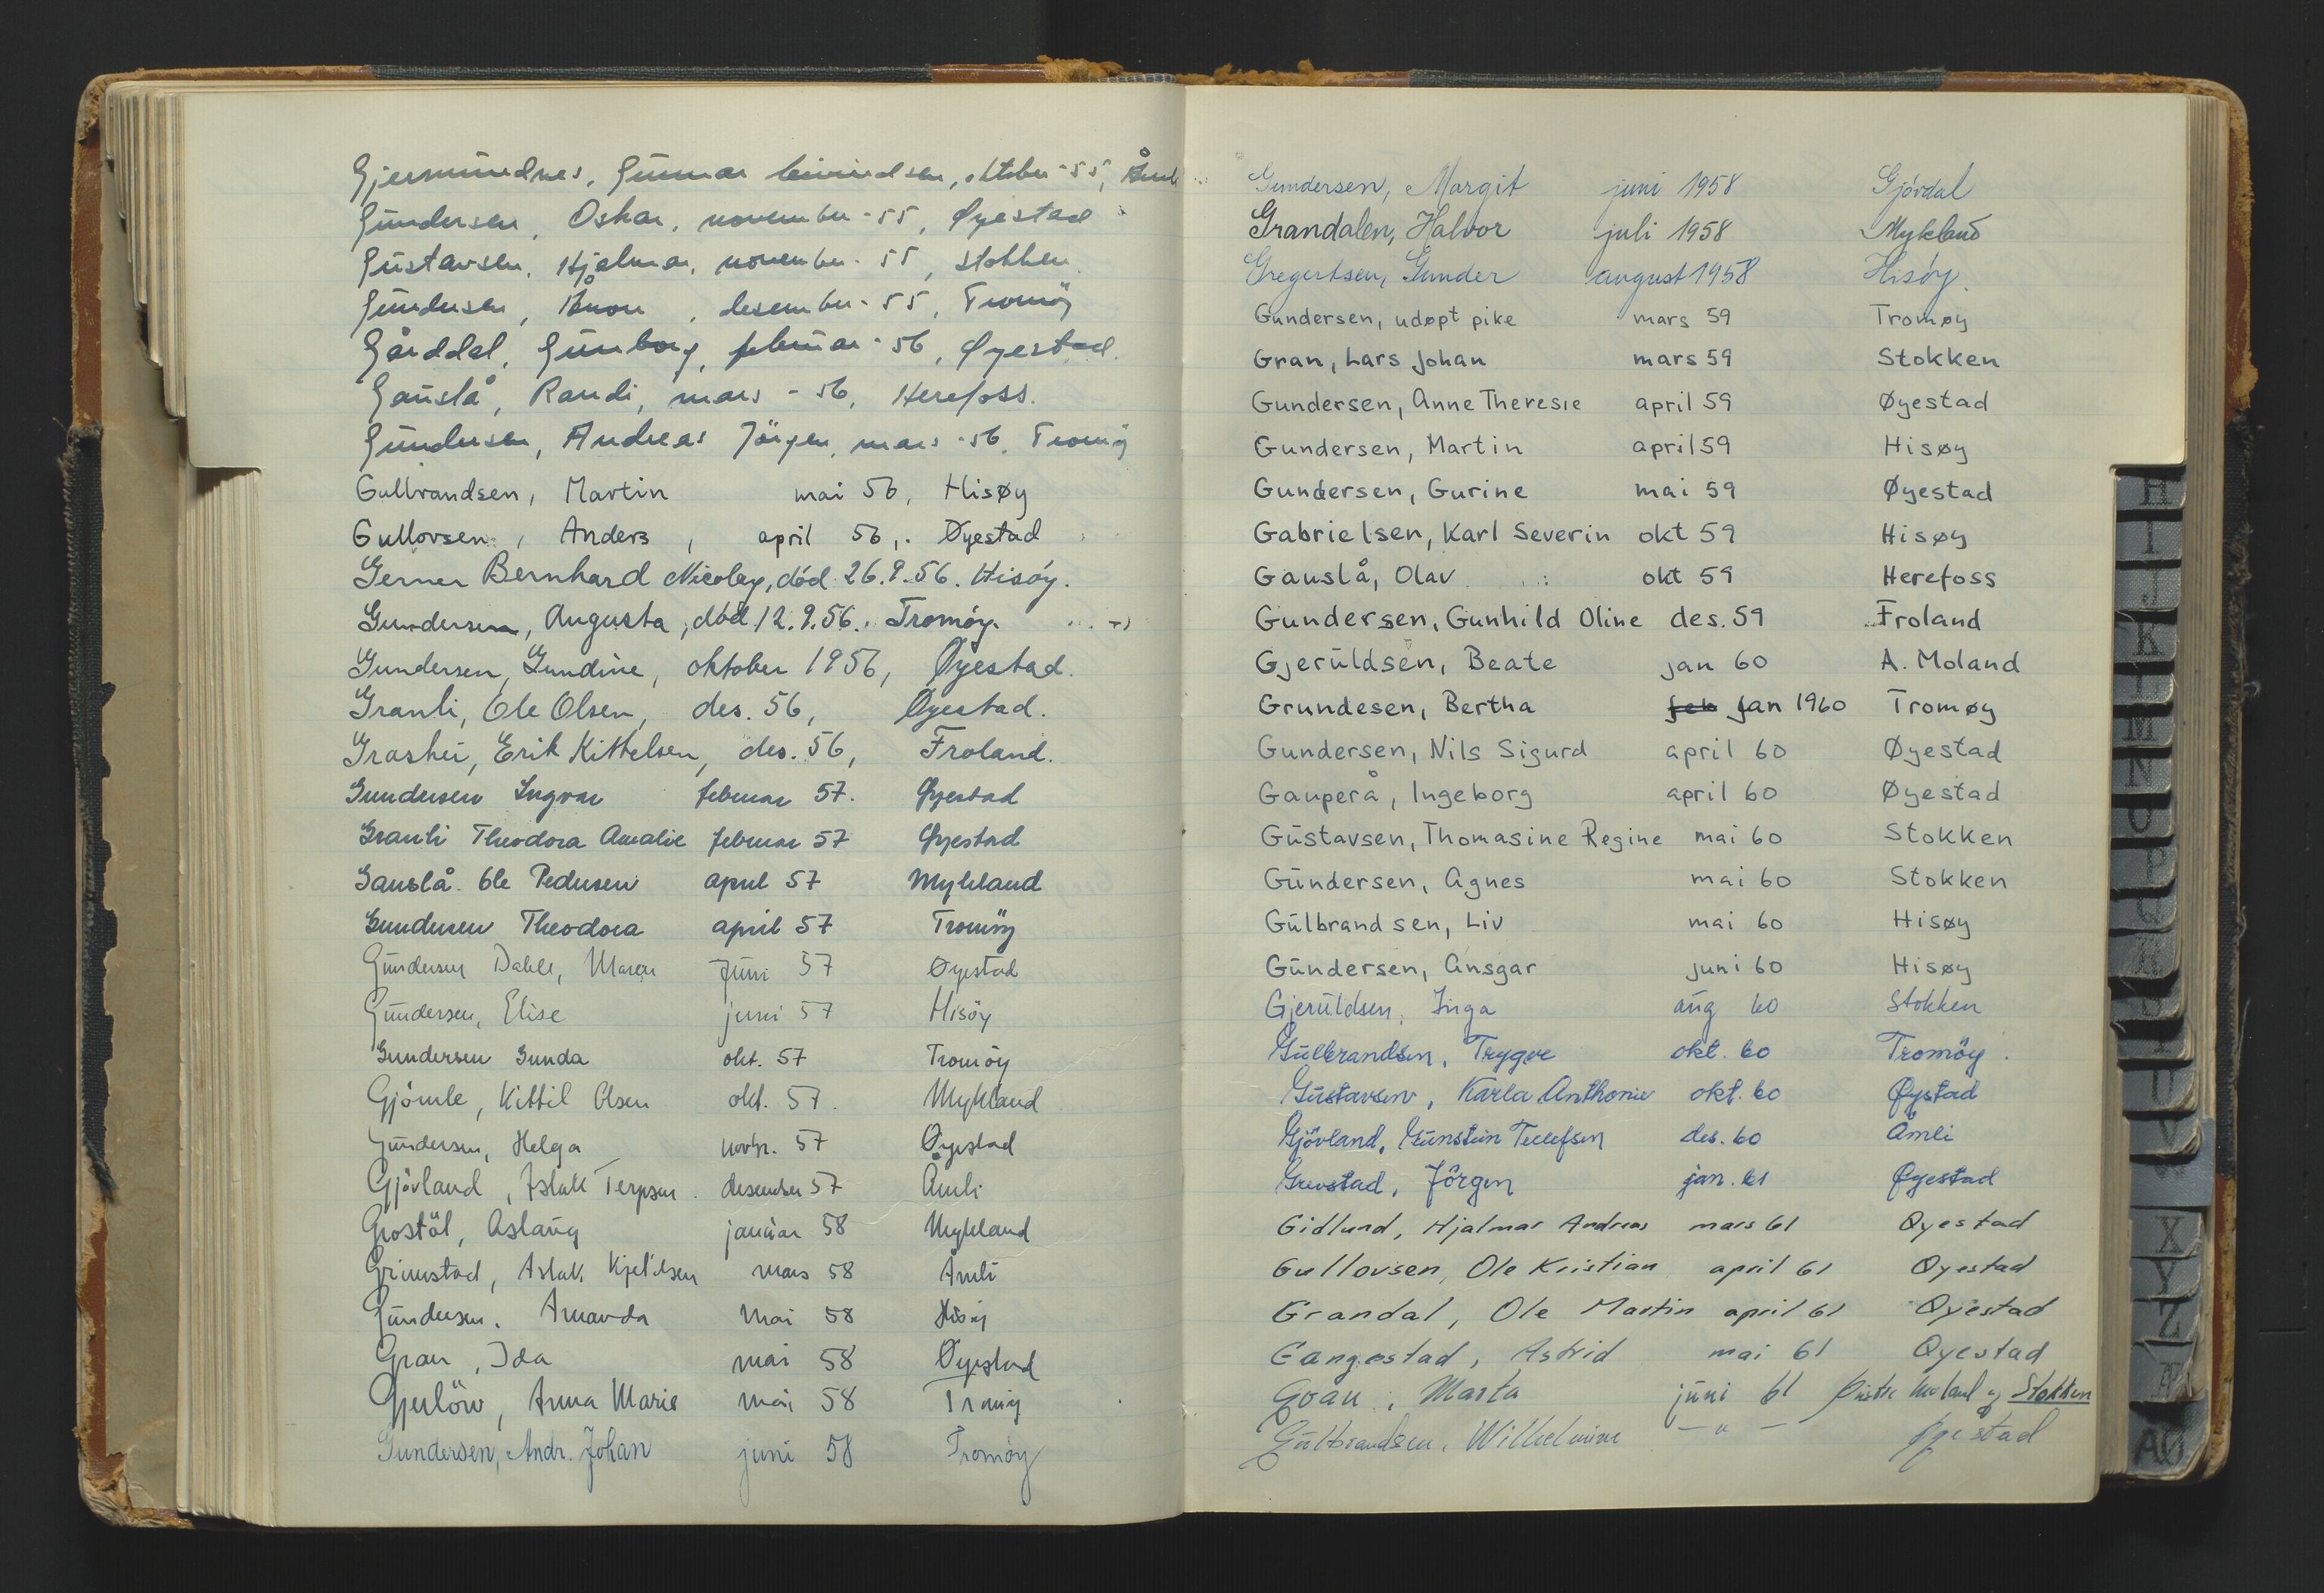 Gjermundnes, Gunnar Eivindsen, oktober - 55, Åmli
Gundersen, Oskar, november - 55, Øyestad
Gustavsen, Hjalmar, november - 55, Stokken
Gundersen, , desember - 55, Tromöy
Gårddal, Gunborg, februar - 56, Øyestad.
Gauslå, Randi, mars - 56, Herefoss.
Gundersen, Andreas Jörgen, mars - 56, Tromöy
Gulbrandsen, Martin mai 56, Hisøy
Gullovsen, Anders, april 56, Øyestad
Gerner Bernhard Nicolay, död 26.9.56. Hisóy.
Gundersen, Augusta, död 12.9.56. Tromóy.
Gundersen, Gundine, oktober 1956, Øyestad.
Granli, Ole Olsen, des. 56, Øyestad.
Grashei, Erik Kittelsen, des. 56, Froland.
Gundersen Ingvar februar 57. Øyestad
Granli Theodora Amalie februar 57 Øyestad
Gauslå Ole Pedersen april 57 Mykland
Gundersen Theodora april 57 Tromöy
Gundersen Dahle, Maren Juni 57 Øyestad
Gundersen, Elise juni 57 Hisöy
Gundersen Gunda okt. 57 Tromöy
Gjömle, Kittil Olsen okt. 57. Mykland
Gundersen, Helga novbr. 57 Øyestad
Gjövland, Aslak Terjesen desember 57 Åmli
Grostöl, Aslaug januar 58 Mykland
Grimstad, Aslak Kjetilsen mars 58 Åmli
Gundersen, Amanda Mai 58 Hisöy
Gran, Ida mai 58 Øyestad
Gjerlöw, Anna Marie mai 58 Tromöy
Gundersen, Andr. Johan juni 58 Tromóy
Gundersen, Margit juni 1958 Gjóvdal
Grandalen, Halvor juli 1958 Mykland
Gregertsen, Gunder august 1958 Hisóy.
Gundersen, udøpt pike mars 59 Tromøy
Gran, Lars Johan mars 59 Stokken
Gundersen, Anne Theresie april 59 Øyestad
Gundersen, Martin april 59 Hisøy
Gundersen, Gurine mai 59 Øyestad
Gabrielsen, Karl Severin okt 59 Hisøy
Gauslå, Olav okt 59 Herefoss
Gundersen, Gunhild Oline des. 59 Froland
Gjerüldsen, Beate jan 60 A. Moland
Grundesen, Bertha feb jan 1960 Tromøy
Gundersen, Nils Sigurd april 60 Øyestad
Gauperå, Ingeborg april 60 Øyestad
Gustavsen, Thomasine Regine mai 60 Stokken
Gundersen, Agnes mai 60 Stokken
Gulbrandsen, Liv mai 60 Hisøy
Gundersen, Ansgar juni 60 Hisøy
Gjeruldsen, Inga aug 60 Stokken
Gulbrandsen, Trygve okt. 60 Tromöy.
Gustavsen, Karla Anthonie okt. 60 Øyestad
Gjövland, Gunstein Tellefsen des. 60 Åmli
Grevstad, Jörgen jan. 61 Øyestad
Gidlund, Hjalmar Andreas mars 61 Øyestad
Gullovsen, Ole Kristian april 61 Øyestad
Grandal, Ole Martin april 61 Øyestad
Gangestad, Astrid mai 61 Øyestad
Goan, Marta juni 61 Østre Moland og Stokken
Gulbrandsen, Wilhelmine — " — Øyestad
H
I
J
K
L
M
N
O
P
Q
R
S
T
U
V
X
Y
Z
Æ
AØ